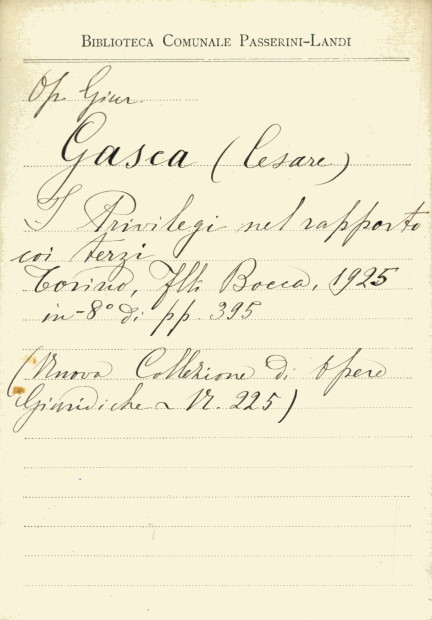 BIBLIOTECA COMUNALE PASSERINI-LANDI
Op. Giur.
Gasca (Cesare)
I Privilegi nel rapporto
coi terzi
Torino, Flli Bocca, 1925
in-8° di pp. 395
(Nuova Collezione di opere
Giuridiche ~ N. 225)